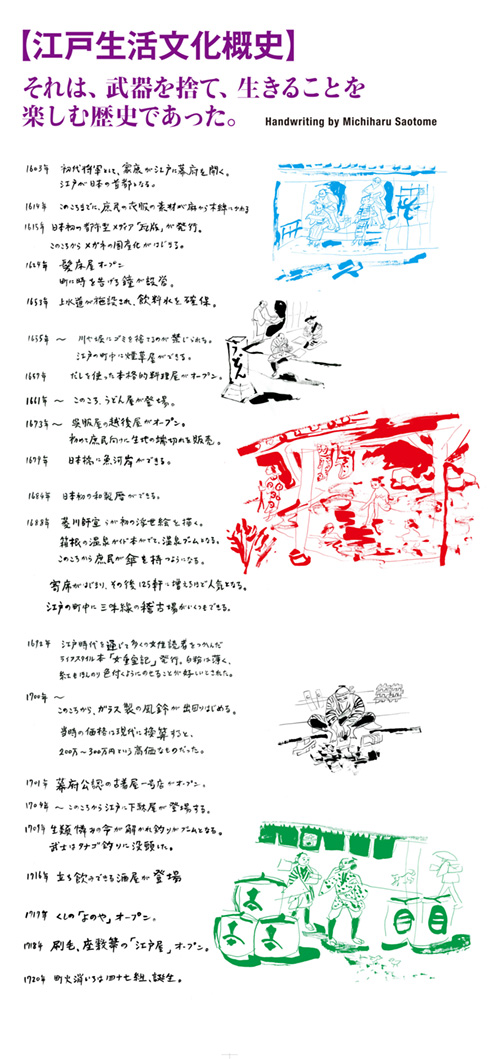 【江戸生活文化概史】
それは、武器を捨て、生きることを
楽しむ歴史であった。
Handwriting by Michiharu Saotome
1603年 初代将軍として、家康が江戸に幕府を開く。
江戸が日本の首都となる。
1614年 このころまでに、庶民の衣服の素材が麻から木綿にかわる
1615年 日本初の都市型メディア「瓦版」が発行。
このころからメガネの国産化がはじまる。
1624年 髪床屋オープン
町に時を告げる鐘が設営。
1653年 上水道が施設され、飲料水を確保。
1655年 〜 川や堀にゴミを捨てるのが禁じられる。
江戸の町中に煙草屋ができる。
1657年 だしを使った本格的料理屋がオープン。
1661年 〜 このころ、うどん屋が登場。
うどん
1673年 〜 呉服屋の越後屋がオープン。
初めて庶民向けに生地の端切れを販売。
1679年 日本橋に魚河岸ができる。
1684年 日本初の和製暦ができる。
1683年 菱川師宣らが初の浮世絵を描く。
箱根の温泉ガイド本がでて、温泉ブームとなる。
このころから庶民が傘を持つようになる。
寄席がはじまり、その後125軒に増えるほど人気となる。
江戸の町中に三味線の稽古場がいくつもできる。
1692年 江戸時代を通じて多くの女性読者をつかんだ
ライフスタイル本「女重宝記」発行。白粉は薄く、
紅もほんのり色付くようにのせることが好しいとされた。
1700年 〜
このころから、ガラス製の風鈴が出回りはじめる。
当時の価格は現代に換算すると、
200万〜300万円という高価なものだった。
1701年 幕府公認の古着屋一号店がオープン。
1704年 〜 このころから江戸に下駄屋が登場する。
1709年 生類憐みの令が解かれ釣りがブームとなる。
武士はタナゴ釣りに没頭した。
1716年 立ち飲みできる酒屋が登場
1717年 くしの「よのや」オープン。
1718年 刷毛、座敷箒の「江戸屋」オープン。
1720年 町火消いろは四十七組、誕生。